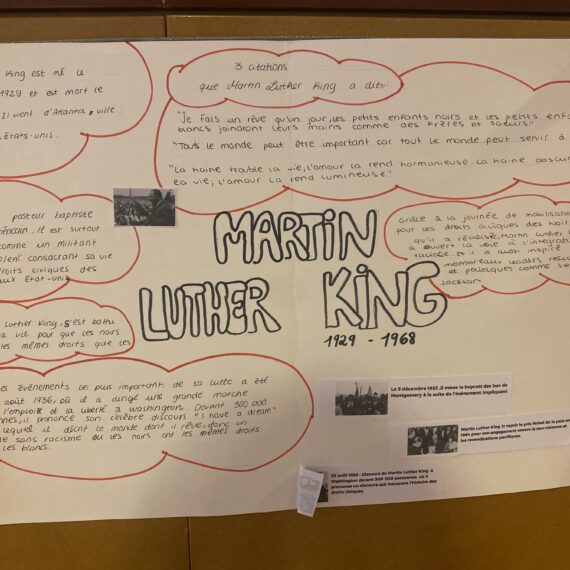 King est né le
1929 et est mort le
Il vient d'Atlanta, ville
États-Unis.
3 citations
que Martin Luther King a dit :
"Je fais un rêve qu'un jour, les petits enfants noirs et les petits enfa
blancs joindront leurs mains comme des frères et sœurs."
"Tout le monde peut être important car tout le monde peut servir à
"La haine trouble la vie; l'amour la rend harmonieuse. La haine obscur
la vie; l'amour la rend lumineuse."
pasteur baptiste
éricain. Il est surtout
comme un militant
olent consacrant sa vie
droits civiques des
aux État-unis
MARTIN
LUTHER KING
1929 - 1968
Grâce à la journée de mobilisation
pour les droits civiques des Noirs
qu'il a réalisé, Martin Luther
a ouvert la voie à l'intégrat
raciale et il a aussi inspiré
nombreux leaders
et politiques comme
Jackson
Luther King, s'est battu
a vie pour que les noirs
les mêmes droits que les
es évènements les plus important de sa lutte a été
août 1936, où il a dirigé une grande marche
l'emploi et la liberté à Washington. Devant 300 000
nnes, il prononce son célèbre discours "i have a dream"
lequel il décrit ce monde dont il rêve, donc un
de sans racisme où les noirs ont les mêmes droits
les blancs.
Le 5 décembre 1955, il mène le boycott des bus de
Montgomery à la suite de l'évènement impliquant
Martin Luther King Jr reçoit le prix Nobel de la paix en
1964 pour son engagement envers la non-violence et
les revendications pacifiques.
28 août 1963 - Discours de Martin Luther King à
Washington devant 250 000 personnes où il
prononce un discours qui marquera l'histoire des
droits civiques.